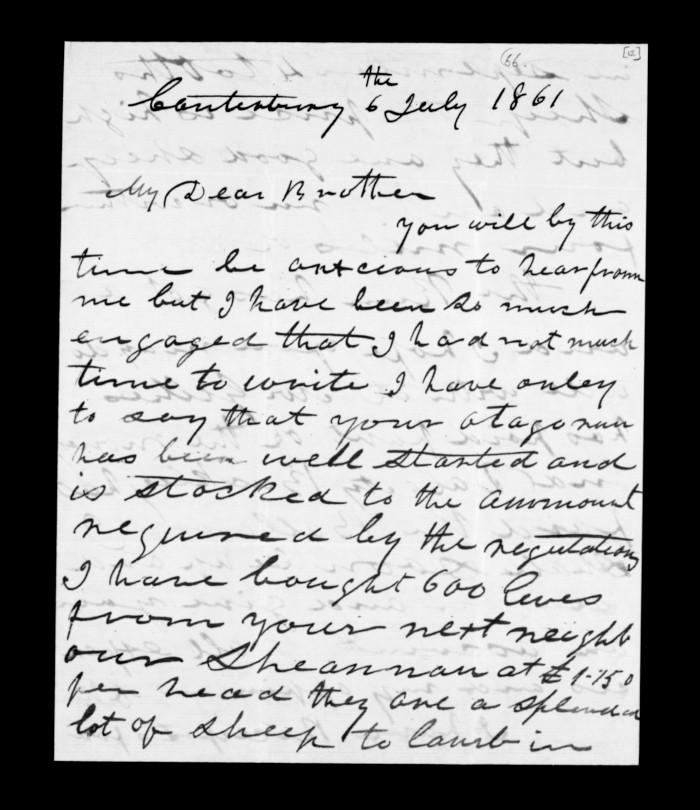 [12]
66.
the
Canterbury 6 July 1861
My Dear Brother
you will by this
time be anxcious to hear from
me but I have been so much
engaged that I had not much
time to write I have onley
to say that your otago run
has been well started and
is stocked to the ammount
required by the regulations
I have bought 600 Ewes
from your next neighb
our Shearman at £1-15-0
per head they are a splendid
lot of sheep to lamb in